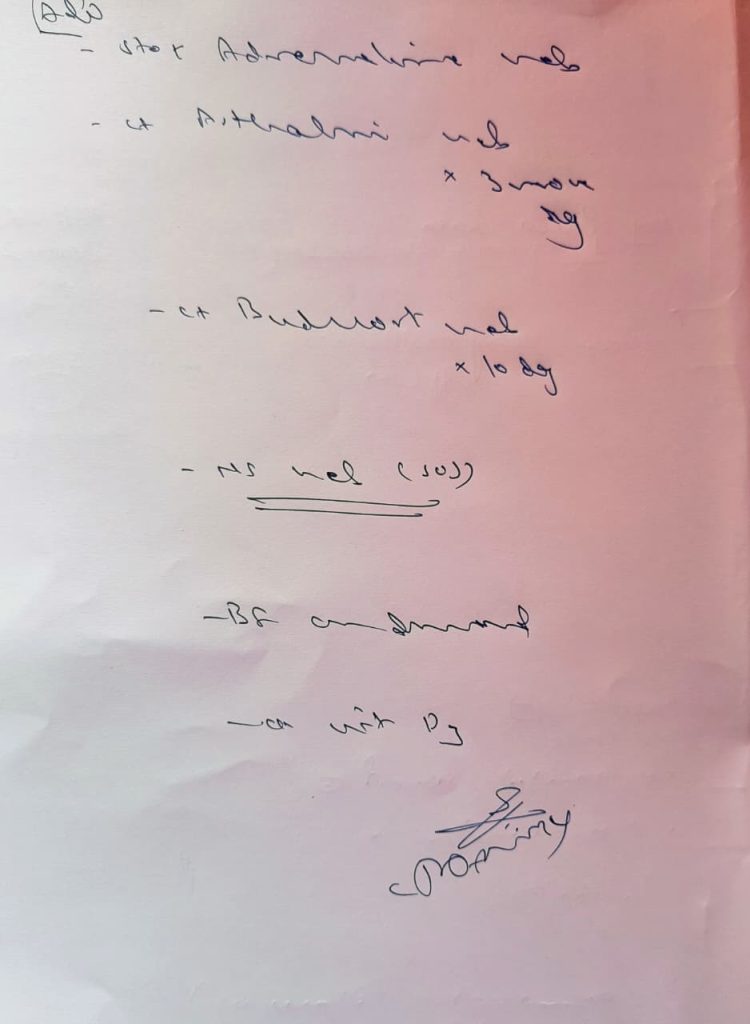 Adv
- stop Adrenaline neb
- ct Asthalin neb
x 3 more
dy
- ct Budecort neb
x 10 dy
- NS neb (SOS)
- BF on demand
- ct vit D3